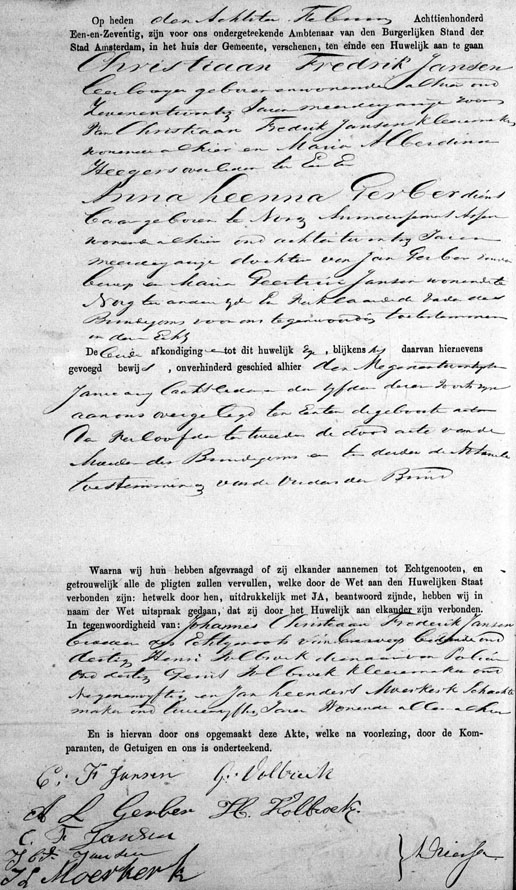 Op heden den Achtste February Achttienhonderd
Een-en-Zeventig, zijn voor ons ondergeteekende Ambtenaar van den Burgerlijken Stand der
Stad Amsterdam, in het huis der Gemeente, verschenen, ten einde een Huwelijk aan te gaan
Christiaan Fredrik Jansen
geboren en wonende alhier oud
Zevenentwintig Jaren meerderjarige zoon
van Christiaan Fredrik Jansen kleermaker
wonende alhier en Maria Alberdina
Heegers overleden ter Eene
Anna Leenna Gerber dienst
baar geboren te Norg
wonende alhier oud achtentwintig Jaren
meerderjarige dochter van Jan Gerber zonder
beroep en Maria Geertruy Jansen wonende te
Norg ter andere zyde En verklaarde de Vader des
Bruidegoms voor ons tegenwoordig toetestemmen
in deze Echt
De beide afkondigingen tot dit huwelijk zyn, blijkens het daarvan hiernevens
gevoegd bewijs, onverhinderd geschied alhier den Negenentwintigsten
January laatstleden en den vyfden dezer Voorts zyn
aan ons overgelegd ten Eersten de geboorte acten
der Verloofden ten tweeden de dood acte van de
Moeder des Bruidegoms en ten derden de Notariele
toestemming van de Ouders der Bruid
Waarna wij hun hebben afgevraagd of zij elkander aannemen tot Echtgenooten, en
getrouwelijk alle de pligten zullen vervullen, welke door de Wet aan den Huwelijken Staat
verbonden zijn: hetwelk door hen, uitdrukkelijk met JA, beantwoord zijnde, hebben wij in
naam der Wet uitspraak gedaan, dat zij door het Huwelijk aan elkander zijn verbonden.
In tegenwoordigheid van: Johannes Christiaan Frederik Jansen
broeder des Echtgenoots oud
dertig Henri Kolbroek dienaar van Policie
oud dertig Gerrit Kolbroek kleermaker oud
Negenenvyftig en Jan Leendert Moerkerk Schoen
maker oud Jaren Wonende allen alhier
En is hiervan door ons opgemaakt deze Akte, welke na voorlezing, door de Kom-
paranten, de Getuigen en ons is onderteekend.
C: F Jansen G: Kolbroek
A L Gerber H. Kolbroek.
C. F Jansen
J C F Jansen
J L Moerkerk